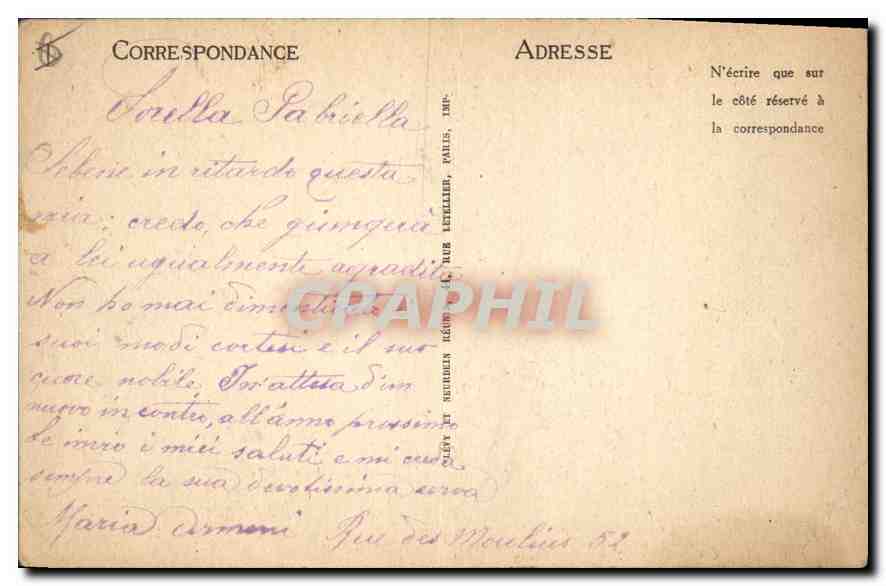 CORRESPONDANCE
ADRESSE
N'écrire que sur
le côté réservé à
la correspondance
Sorella Gabriella
Sebene in ritardo questa
mia, credo, che giungerà
a lei ugualmente agradita
Non ho mai dimenticato
suoi modi cortesi e il suo
cuore nobile In attesa d'un
nuovo incontro, all'anno prossimo
Le invio i miei saluti e mi creda
sempre la sua devotissima serva
Maria Armeni Rue des Moulins 52
LÉVY ET NEURDEIN RÉUNIS, 44, RUE LETELLIER, PARIS, IMP.
CPAPHIL